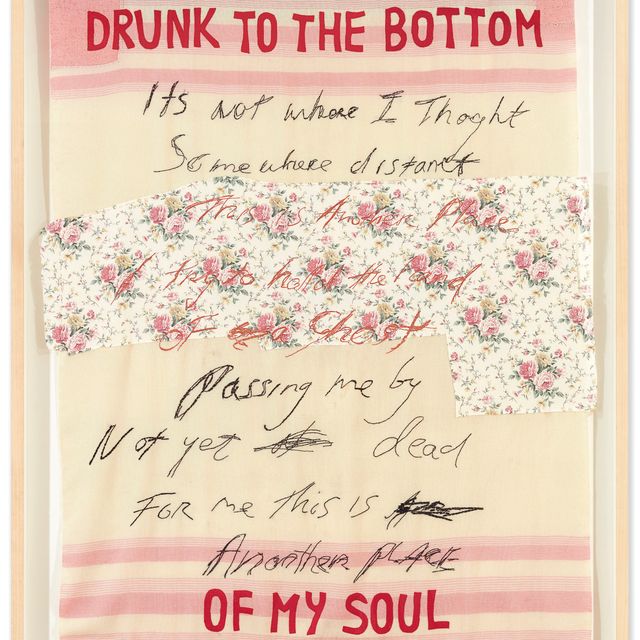 DRUNK TO THE BOTTOM
Its not where I Thoght
Somewhere distant
This is Another Place
I try to hold the hand
of a Ghost
Passing me by
Not yet dead
FOR me this is
Anonther place
OF MY SOUL